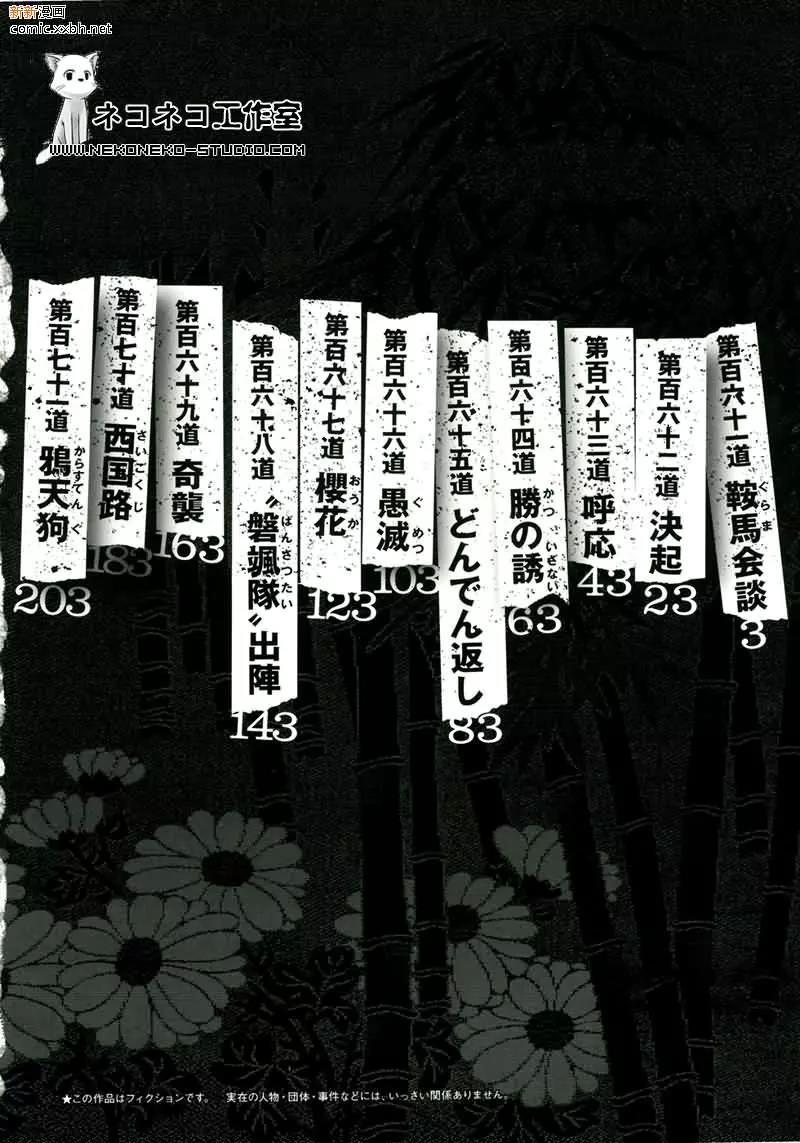 新新漫画
comic.xxbh.net
ネコネコ工作室
WWW.NEKONEKO-STUDIO.COM
第百六十一道 鞍馬会談
ぐらま
3
第百六十二道 決起
23
第百六十三道 呼応
43
第百六十四道 勝の誘
かつ いざない
63
第百六十五道 どんでん返し
83
第百六十六道 愚滅
ぐめつ
103
第百六十七道 櫻花
おうか
123
第百六十八道 〝磐颯隊〟出陣
ばんさつたい
143
第百六十九道 奇襲
163
第百七十道 西国路
さいごくじ
183
第百七十一道 鴉天狗
からすてんぐ
203
★この作品はフィクションです。 実在の人物・団体・事件などには、いっさい関係ありません。